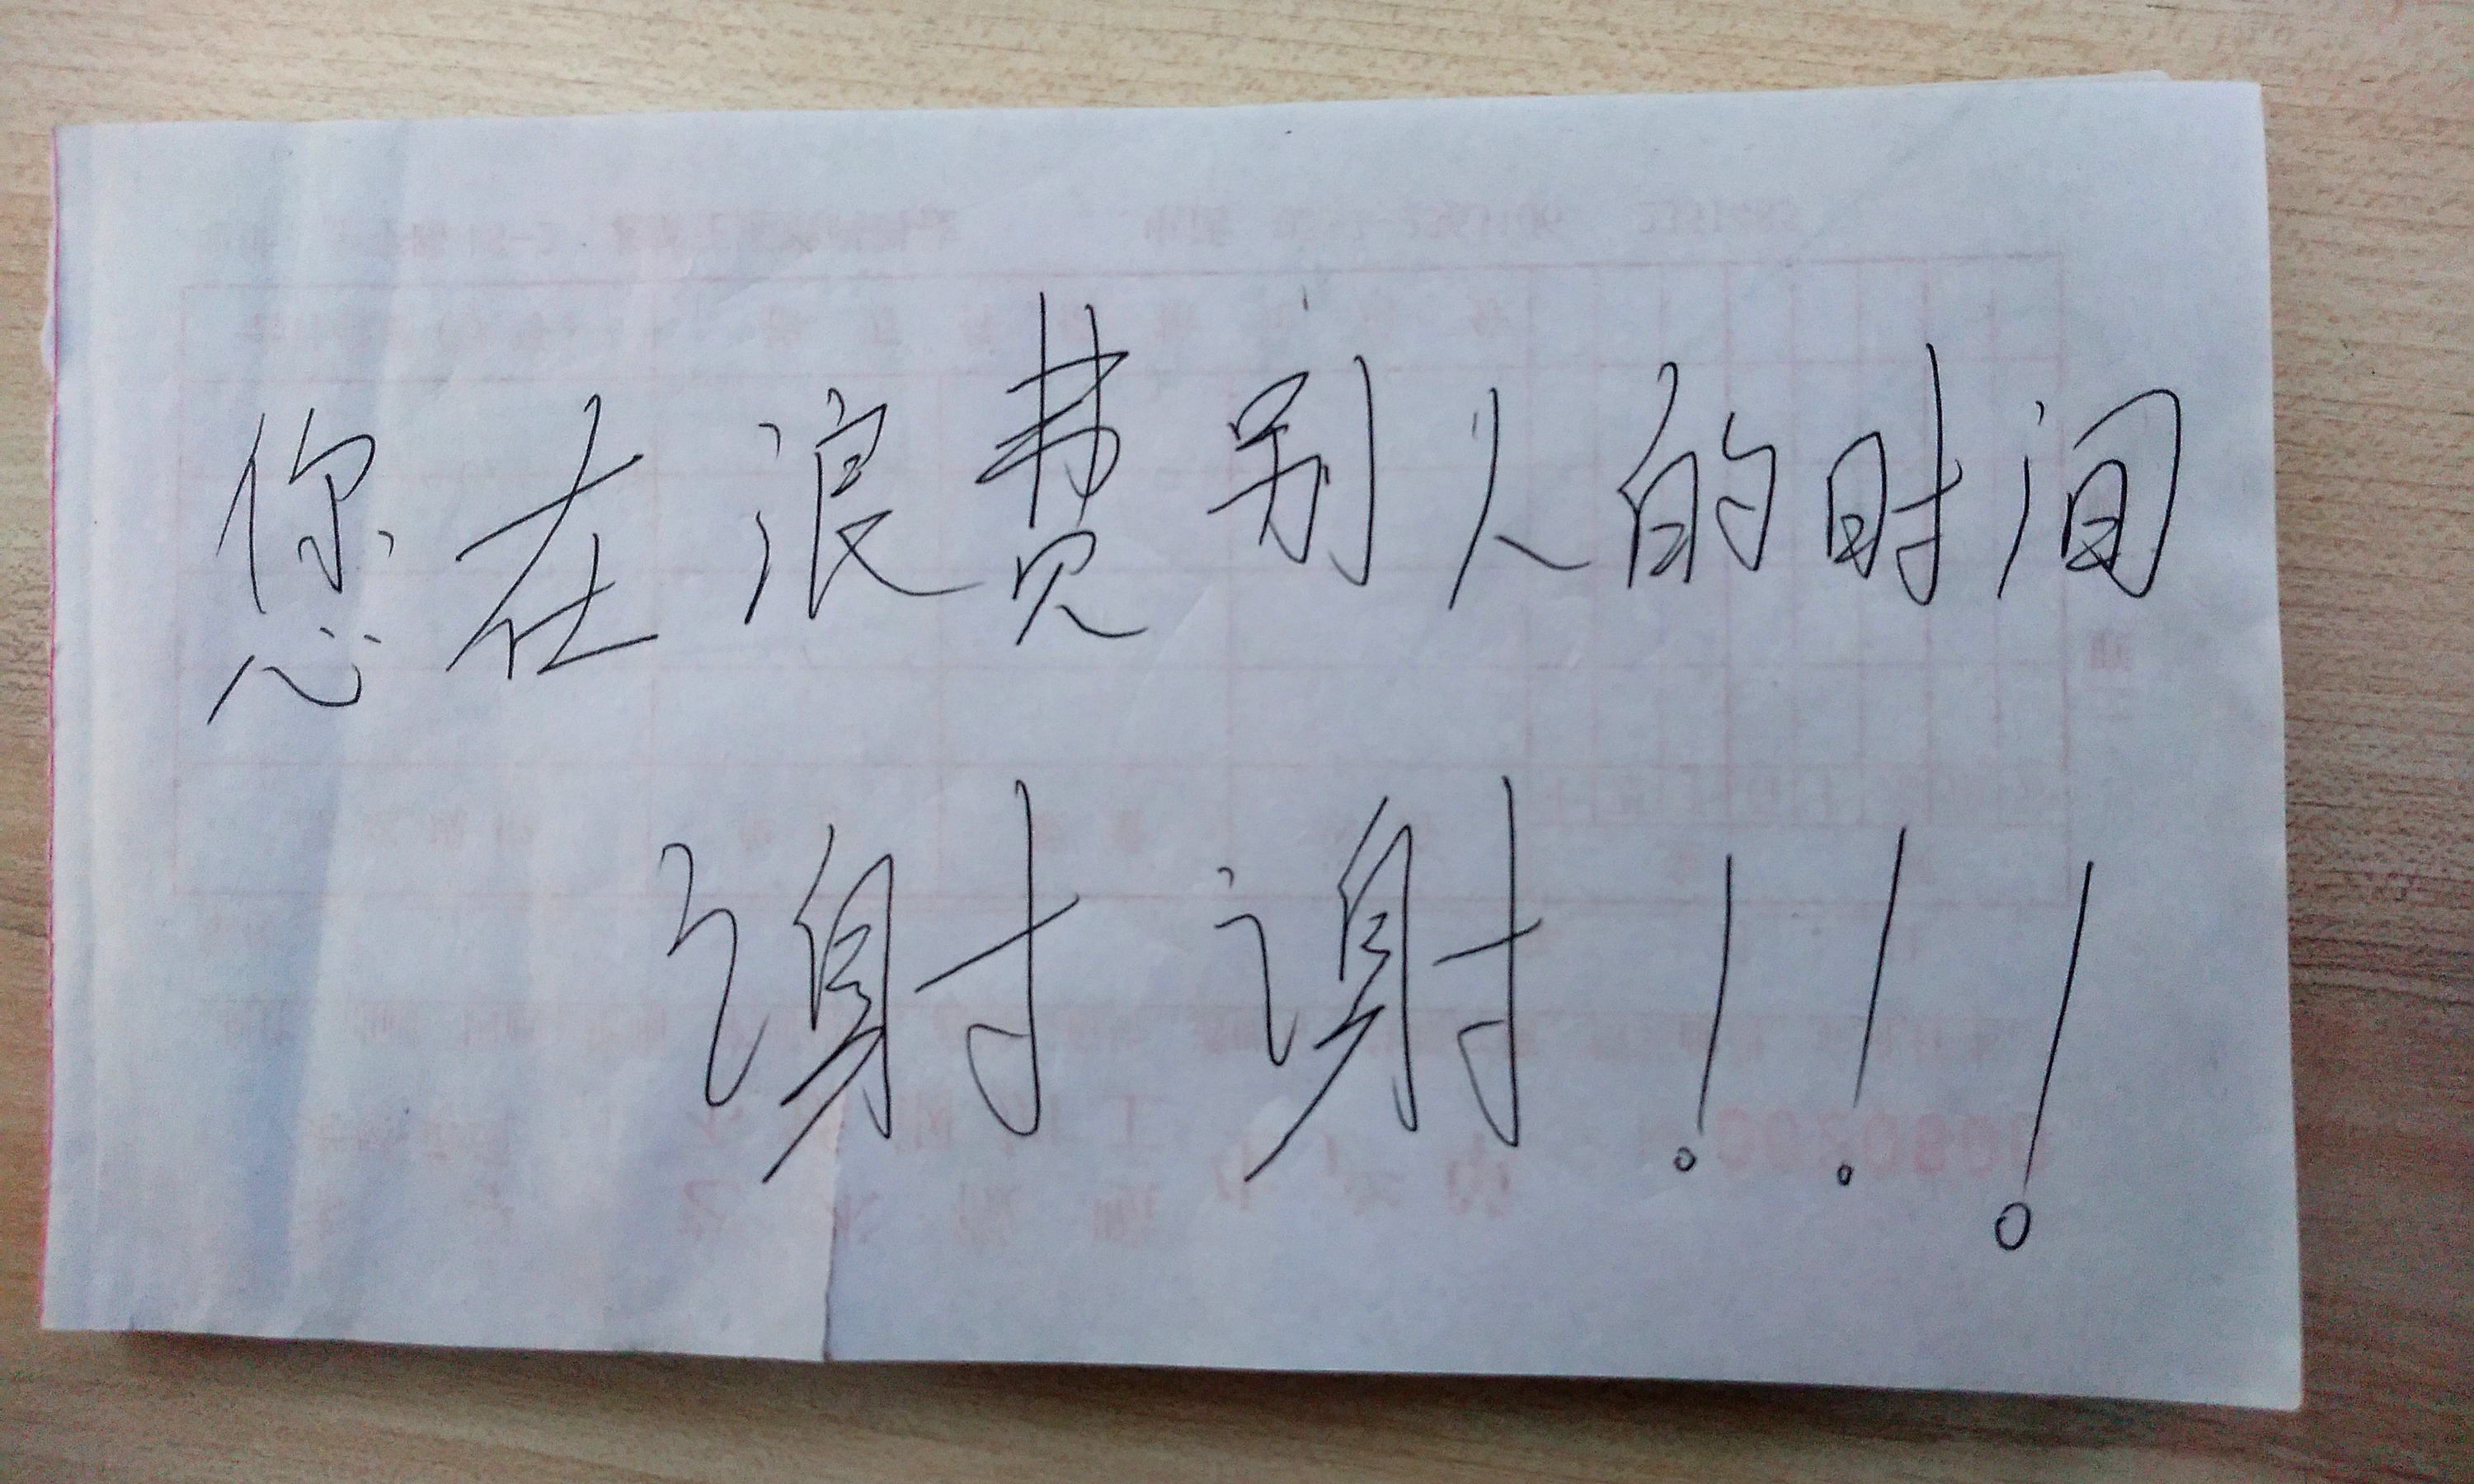 您在浪费别人的时间
谢谢!!!